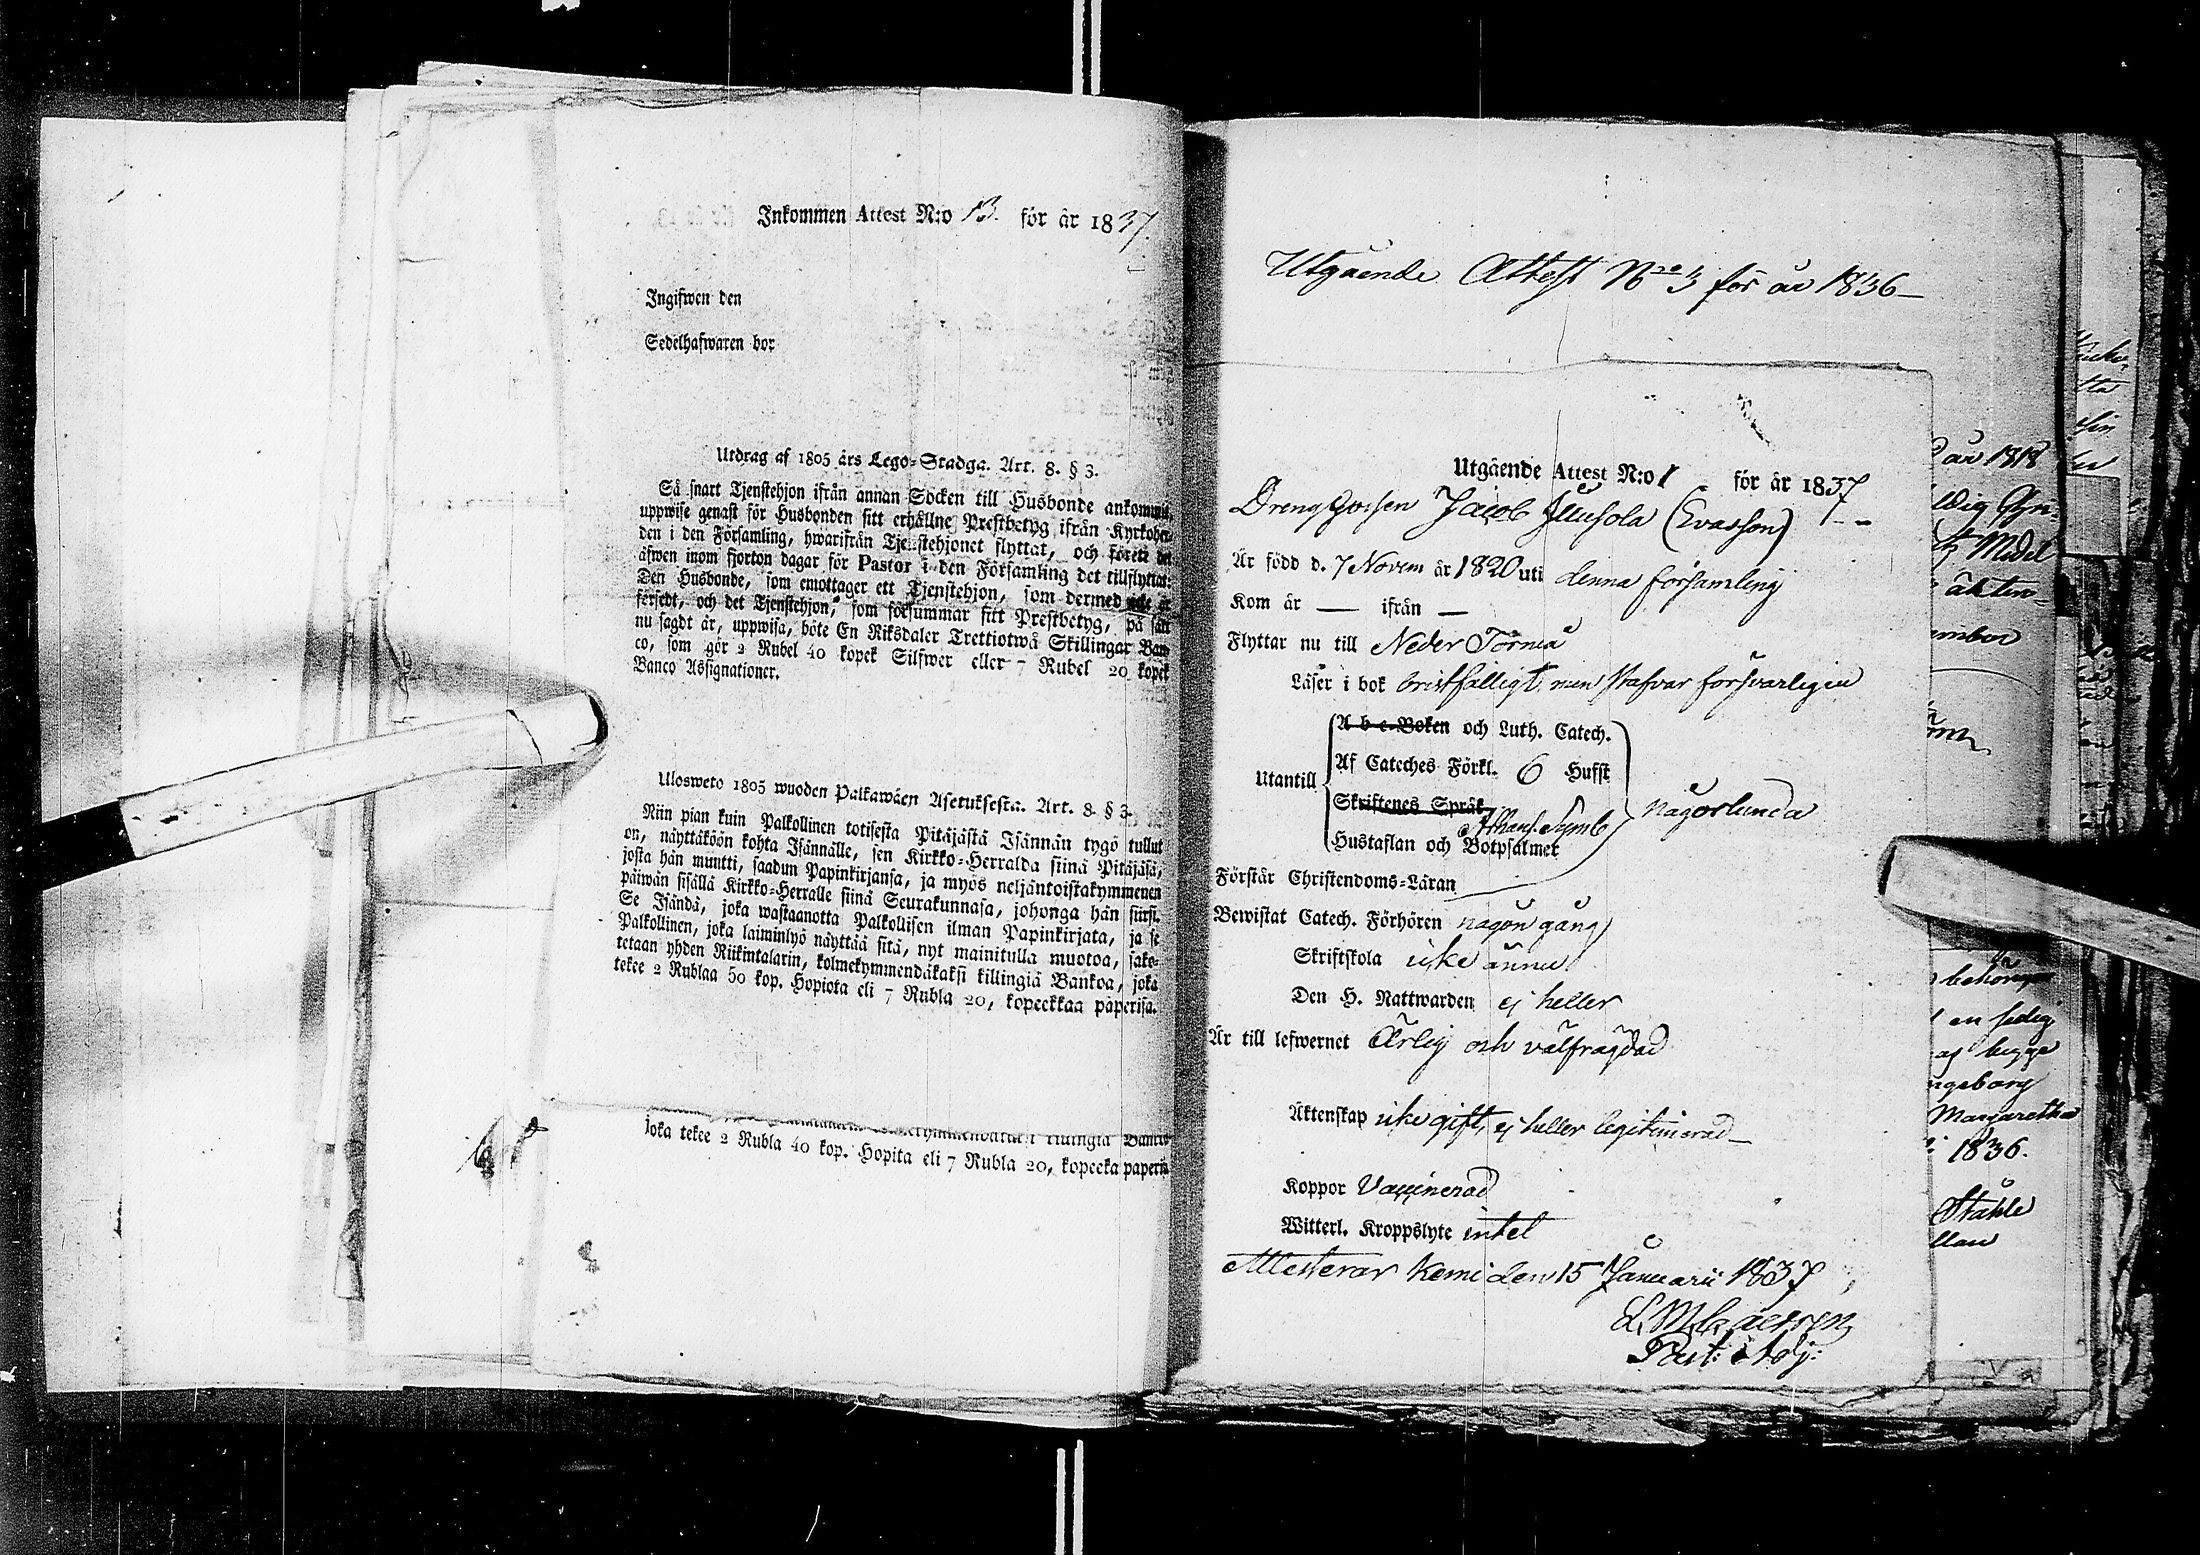 Inkommen Attest N:o 13. för år 1837.
Ingifwen den
Sedelhafwaren bor
Utdrag af 1805 års Lego-Stadga. Art. 8. § 3.
Så snart Tjenstehjon ifrån annan Socken till Husbonde ankommit,
uppwise genast för Husbonden sitt erhållne Prestbetyg ifrån Kyrkoher-
den i den Församling, hwarifrån Tjenstehjonet flyttat, och förete det
äfwen inom fjorton dagar för Pastor i den Församling det tillflyttat.
Den Husbonde, som emottager ett Tjenstehjon, som dermed icke är
försedt, och det Tjenstehjon, som försummar sitt Prestbetyg, på sätt
nu sagdt är, uppwisa, böte En Riksdaler Trettiotwå Skillingar Ban-
co, som gör 2 Rubel 40 kopek Silfwer eller 7 Rubel 20 kopek
Banco Assignationer.
Ulosweto 1805 wuoden Palkawäen Asetuksesta. Art. 8. § 3.
Niin pian kuin Palkollinen totisesta Pitäjästä Isännän tygö tullut
on, näyttäköön kohta Isännälle, sen Kirkko-Herralda siinä Pitäjäsä,
josta hän muutti, saadun Papinkirjansa, ja myös neljäntoistakymmenen
päiwän sisällä Kirkko-Herralle siinä Seurakunnasa, johonga hän siirsi.
Se Isändä, joka wastaanotta Palkollisen ilman Papinkirjata, ja se
Palkollinen, joka laiminlyö näyttää sitä, nyt mainitulla muotoa, sako-
tetaan yhden Riikintalarin, kolmekymmendäkaksi killingiä Bankoa, joka
tekee 2 Rublaa 50 kop. Hopiota eli 7 Rubla 20, kopeekkaa paperisa.
joka tekee 2 Rubla 40 kop. Hopita eli 7 Rubla 20, kopeeka paperis
Utgående Attest N:o 3 för år 1836
Utgående Attest N:o 1 för år 1837
Drenggossen Jacob (Evasson)
Är född d. 7 Novem år 1820 uti denna församling
Kom år — ifrån —
Flyttar nu till Neder Torneå
Läser i bok bristfälligt, men stafvar försvarligen
Utantill
A b c-Boken och Luth. Catech.
Af Cateches Förkl. 6 Hufst
Skriftenes Språk
Athanas. Symb
Hustaflan och Botpsalmer
någorlunda
Förstår Christendoms-Läran
Bewistat Catech. Förhören någon gång
Skriftskola icke ännu
Den H. Nattwarden ej heller
Är till lefwernet Ärlig och välfrägdad
Äktenskap icke gift, ej heller legitimerad
Koppor Vaccinerad
Witterl. Kroppslyte intet
Attesterar Kemi den 15 Januarii 1837
Past: Adj:
år 1818
Margaretha
1836.
Ståhle